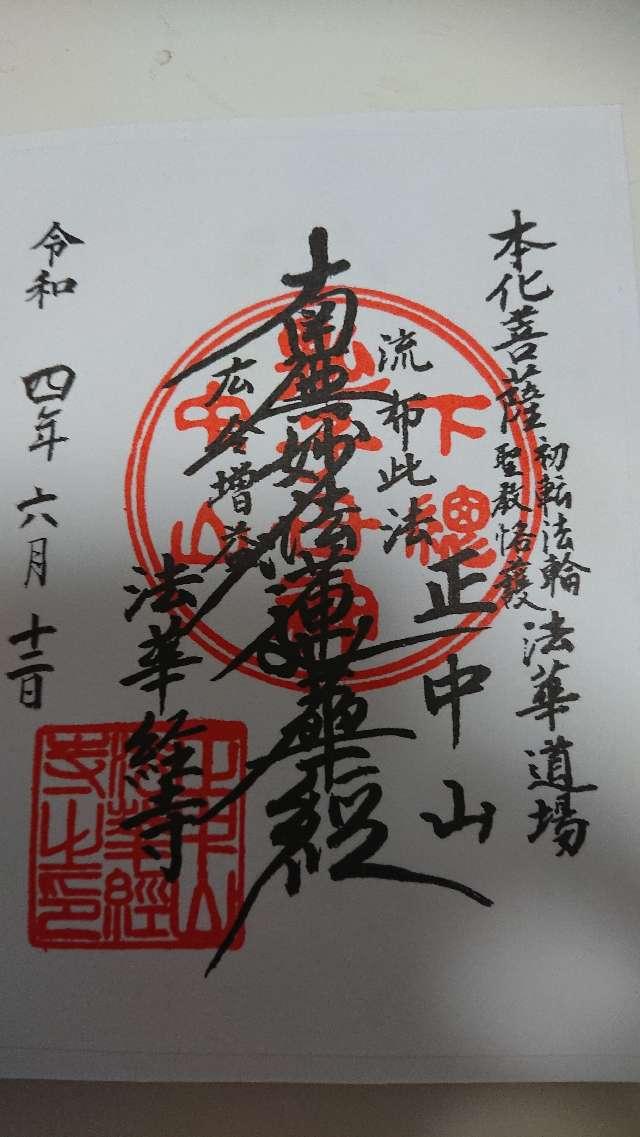 本化菩薩初転法輪聖教恪護法華道場
流布此法
正中山
南無妙法蓮華経
広令増益
法華経寺
令和四年六月十二日
下總
中山
中山
法華經
寺之印